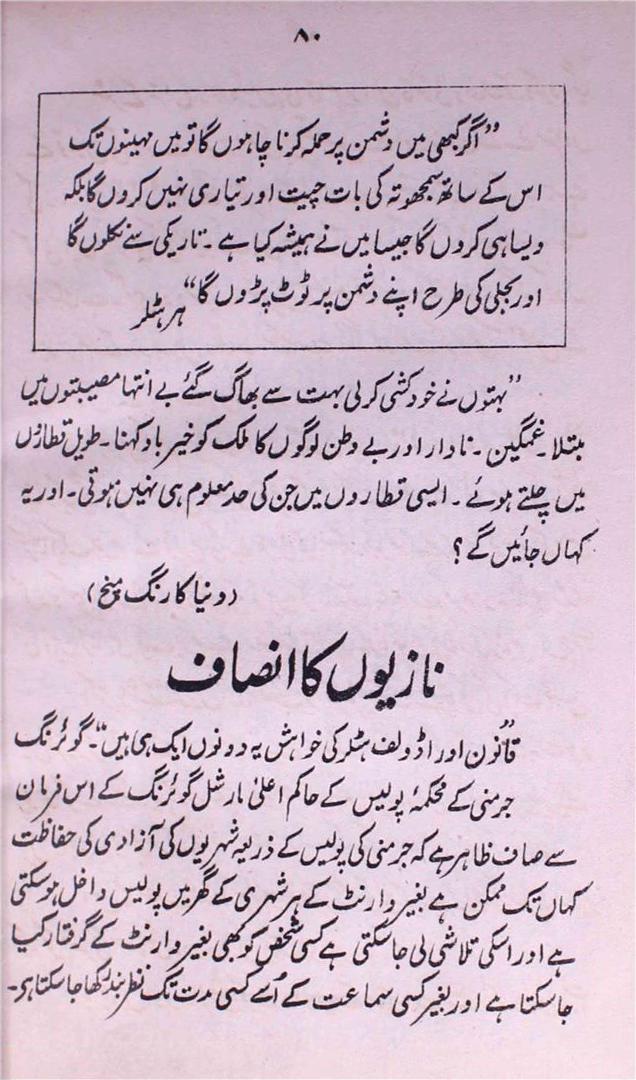 ۸۰
”اگر کبھی میں دشمن پر حملہ کرنا چاہوں گا تو میں مہینوں تک
اس کے ساتھ سمجھوتہ کی بات چیت اور تیاری نہیں کروں گا بلکہ
ویسا ہی کروں گا جیسا میں نے ہمیشہ کیا ہے ۔ تاریکی سے نکلوں گا
اور بجلی کی طرح اپنے دشمن پر ٹوٹ پڑوں گا“ ہر ہٹلر
”بہتوں نے خود کشی کر لی بہت سے بھاگ گئے بے انتہا مصیبتوں میں
مبتلا ۔ غمگین ۔ نادار اور بے وطن لوگوں کا ملک کو خیر باد کہنا ۔ طویل قطاروں
میں چلتے ہوئے ۔ ایسی قطاروں میں جن کی حد معلوم ہی نہیں ہوتی ۔ اور یہ
کہاں جائیں گے ؟
(دونیا کا رنگ منچ)
نازیوں کا انصاف
”قانون اور اڈولف ہٹلر کی خواہش یہ دونوں ایک ہی ہیں“ ۔ گوئرنگ
جرمنی کے محکمۂ پولیس کے حاکم اعلیٰ مارشل گوئرنگ کے اس فرمان
سے صاف ظاہر ہے کہ جرمنی کی پولیس کے ذریعہ شہریوں کی آزادی کی حفاظت
کہاں تک ممکن ہے بغیر وارنٹ کے ہر شہری کے گھر میں پولیس داخل ہو سکتی
ہے اور اسکی تلاشی لی جا سکتی ہے کسی شخص کو بھی بغیر وارنٹ کے گرفتار کیا
جا سکتا ہے اور بغیر کسی سماعت کے اُسے کسی مدت تک نظر بند رکھا جا سکتا ہی ۔